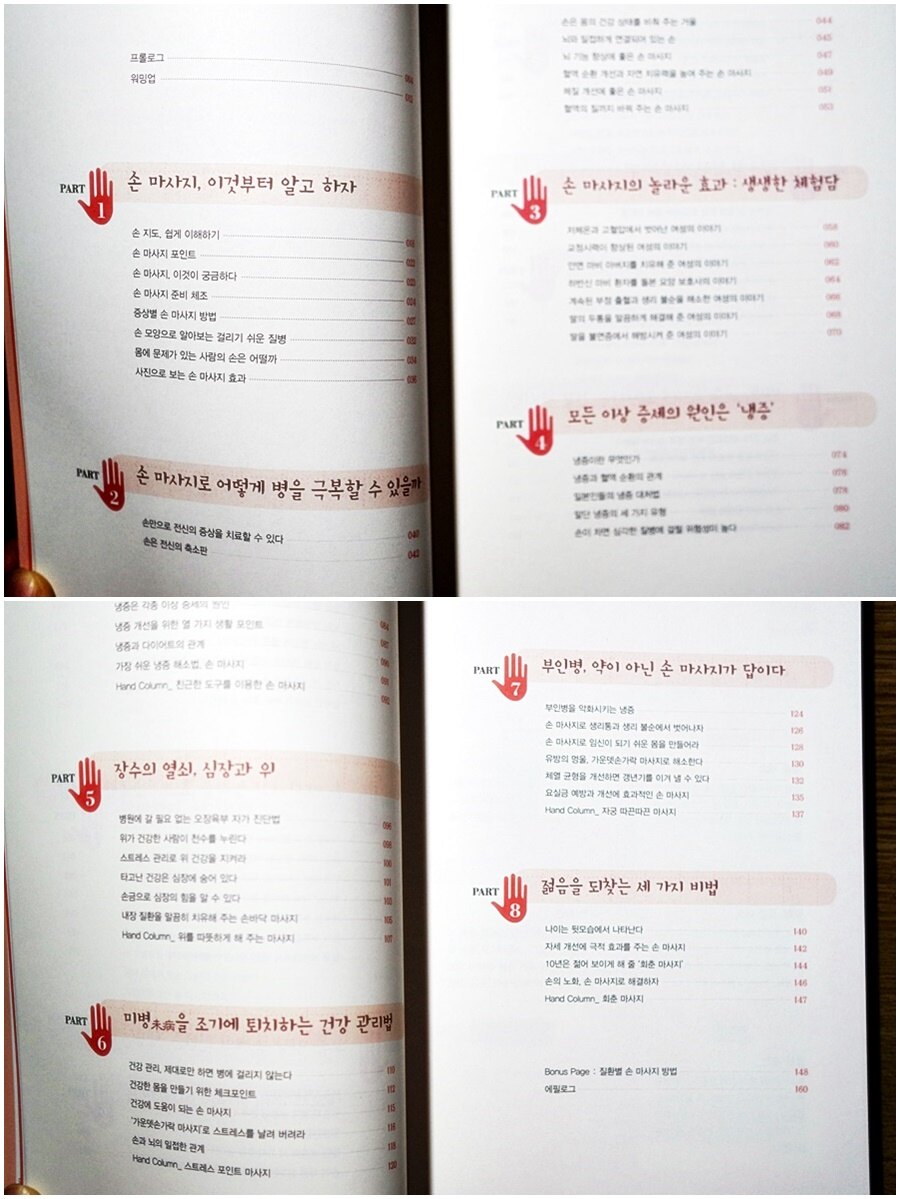 프롤로그
워밍업
PART 1 손 마사지, 이것부터 알고 하자
손 지도, 쉽게 이해하기 018
손 마사지 포인트 022
손 마사지, 이것이 궁금하다 023
손 마사지 준비 체조 024
증상별 손 마사지 방법 027
손 모양으로 알아보는 걸리기 쉬운 질병 032
몸에 문제가 있는 사람의 손은 어떨까 034
사진으로 보는 손 마사지 효과 036
PART 2 손 마사지로 어떻게 병을 극복할 수 있을까
손만으로 전신의 증상을 치료할 수 있다 040
손은 전신의 축소판 042
손은 몸의 건강 상태를 비춰 주는 거울 044
뇌와 밀접하게 연결되어 있는 손 045
뇌 기능 향상에 좋은 손 마사지 047
혈액 순환 개선과 자연 치유력을 높여 주는 손 마사지 049
체질 개선에 좋은 손 마사지 051
혈액의 질까지 바꿔 주는 손 마사지 053
PART 3 손 마사지의 놀라운 효과 : 생생한 체험담
저체온과 고혈압에서 벗어난 여성의 이야기 058
교정시력이 향상된 여성의 이야기 060
안면 마비 아버지를 치유해 준 여성의 이야기 062
하반신 마비 환자를 돌본 요양 보호사의 이야기 064
계속된 부정 출혈과 생리 불순을 해소한 여성의 이야기 066
딸의 두통을 말끔하게 해결해 준 여성의 이야기 068
딸을 불면증에서 해방시켜 준 여성의 이야기 070
PART 4 모든 이상 증세의 원인은 ‘냉증’
냉증이란 무엇인가 074
냉증과 혈액 순환의 관계 076
일본인들의 냉증 대처법 078
말단 냉증의 세 가지 유형 080
손이 차면 심각한 질병에 걸릴 위험성이 높다 082
냉증은 각종 이상 증세의 원인 084
냉증 개선을 위한 열 가지 생활 포인트 087
냉증과 다이어트의 관계 090
가장 쉬운 냉증 해소법, 손 마사지 091
Hand Column_ 친근한 도구를 이용한 손 마사지 092
PART 5 장수의 열쇠, 심장과 위
병원에 갈 필요 없는 오장육부 자가 진단법 096
위가 건강한 사람이 천수를 누린다 098
스트레스 관리로 위 건강을 지켜라 100
타고난 건강은 심장에 숨어 있다 101
손금으로 심장의 힘을 알 수 있다 103
내장 질환을 말끔히 치유해 주는 손바닥 마사지 105
Hand Column_ 위를 따뜻하게 해 주는 마사지 107
PART 6 미병未病을 조기에 퇴치하는 건강 관리법
건강 관리, 제대로만 하면 병에 걸리지 않는다 110
건강한 몸을 만들기 위한 체크포인트 112
건강에 도움이 되는 손 마사지 115
‘가운뎃손가락 마사지’로 스트레스를 날려 버려라 116
손과 뇌의 밀접한 관계 118
Hand Column_ 스트레스 포인트 마사지 120
PART 7 부인병, 약이 아닌 손 마사지가 답이다
부인병을 악화시키는 냉증 124
손 마사지로 생리통과 생리 불순에서 벗어나자 126
손 마사지로 임신이 되기 쉬운 몸을 만들어라 128
유방의 멍울, 가운뎃손가락 마사지로 해소한다 130
체열 균형을 개선하면 갱년기를 이겨 낼 수 있다 132
요실금 예방과 개선에 효과적인 손 마사지 135
Hand Column_ 자궁 따끈따끈 마사지 137
PART 8 젊음을 되찾는 세 가지 비법
나이는 뒷모습에서 나타난다 140
자세 개선에 극적 효과를 주는 손 마사지 142
10년은 젊어 보이게 해 줄 ‘회춘 마사지’ 144
손의 노화, 손 마사지로 해결하자 146
Hand Column_ 회춘 마사지 147
Bonus Page : 질환별 손 마사지 방법 148
에필로그 160